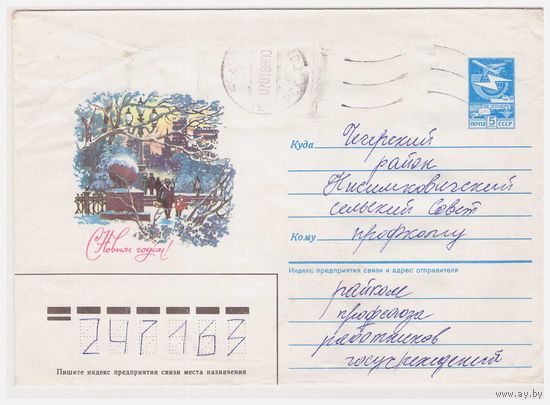 ПОЧТА 5 СССР
Куда Чечерский
район
Нисимковичский
сельский Совет
Кому профкому
Индекс предприятия связи и адрес отправителя
райком
профсоюза
работников
госучреждений
С Новым годом!
247163
Пишите индекс предприятия связи места назначения
www.ay.by